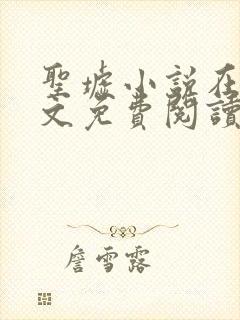 聖墟小説在
文免費閱讀
詹雪露